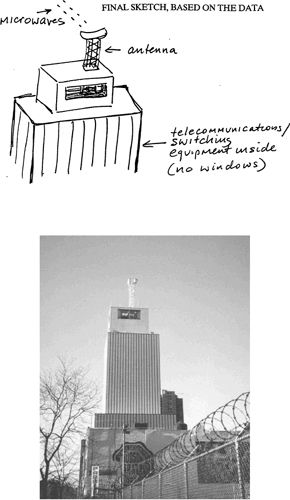 FINAL SKETCH, BASED ON THE DATA
MICROWAVES
antenna
telecommunications/
switching
equipment inside
(no windows)